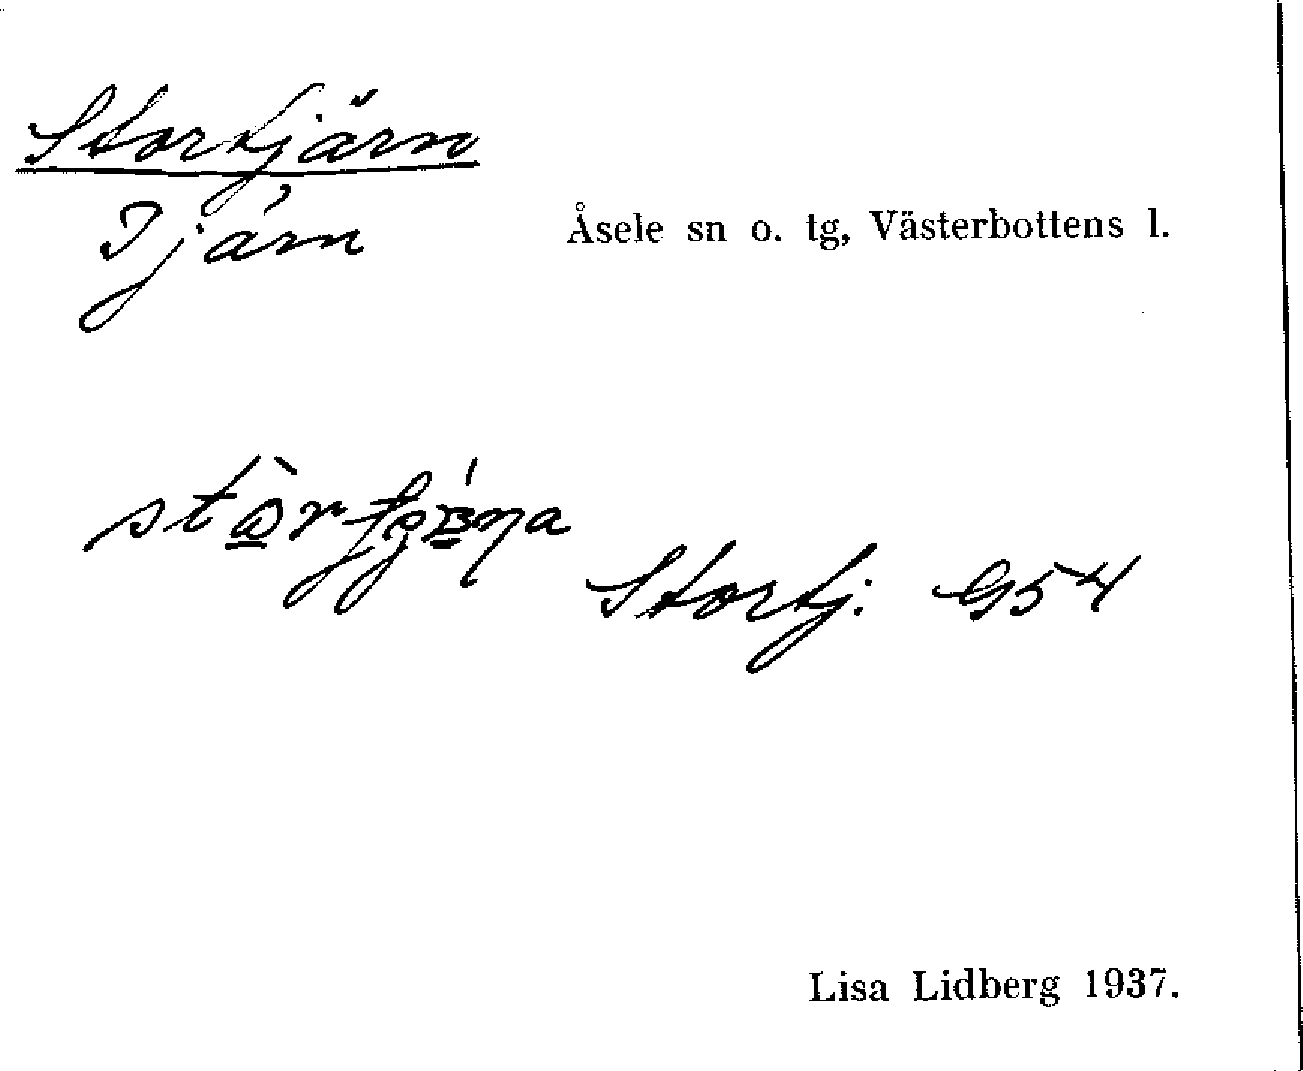 Stortjärn
Tjärn
Åsele sn o. tg, Västerbottens l.
Stortj. G54
Lisa Lidberg 1937.